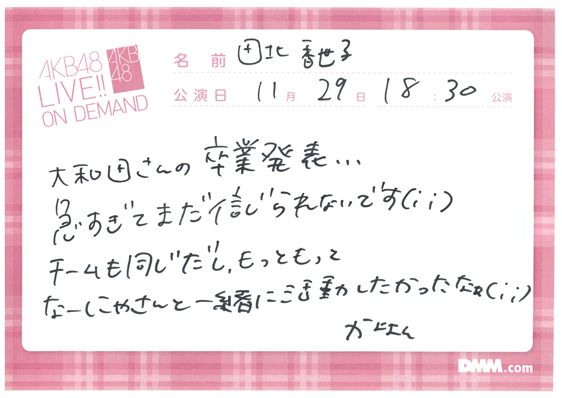 AKB48
LIVE!!
ON DEMAND
AKB
48
名前 田北香世子
公演日 11月29日 18:30公演
大和田さんの卒業発表...
急すぎてまだ信じられないです(;;)
チームも同じだし、もっともっと
なーにゃさんと一緒に活動したかったなぁ(;;)
かよよん
DMM.com